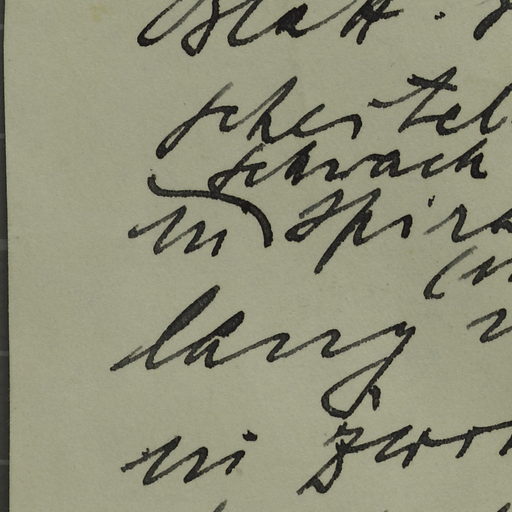 Blatt.
scheitel
schwach
in Spira
lang
in zwo